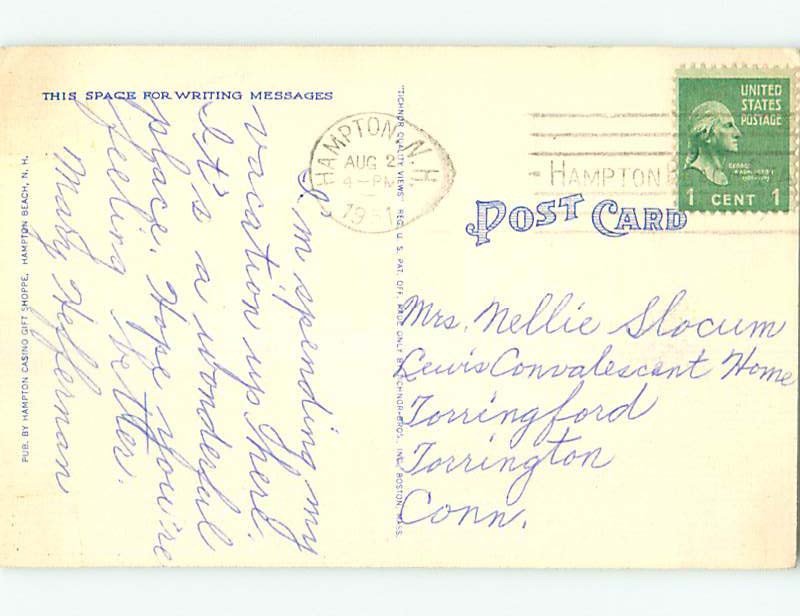 THIS SPACE FOR WRITING MESSAGES
I'm spending my
vacation up there.
It's a wonderful
place. Hope you're
feeling better.
Mary Heffernan
PUB. BY HAMPTON CASINO GIFT SHOPPE, HAMPTON BEACH, N. H.
"TICHNOR QUALITY VIEWS" REG. U. S. PAT. OFF. MADE ONLY BY TICHNOR BROS., INC., BOSTON, MASS.
HAMPTON N.H.
AUG 2
4-PM
1951
HAMPTON
UNITED
STATES
POSTAGE
GEORGE
WASHINGTON
1 CENT 1
POST CARD
Mrs. Nellie Slocum
Lewis Convalescent Home
Torringford
Torrington
Conn.